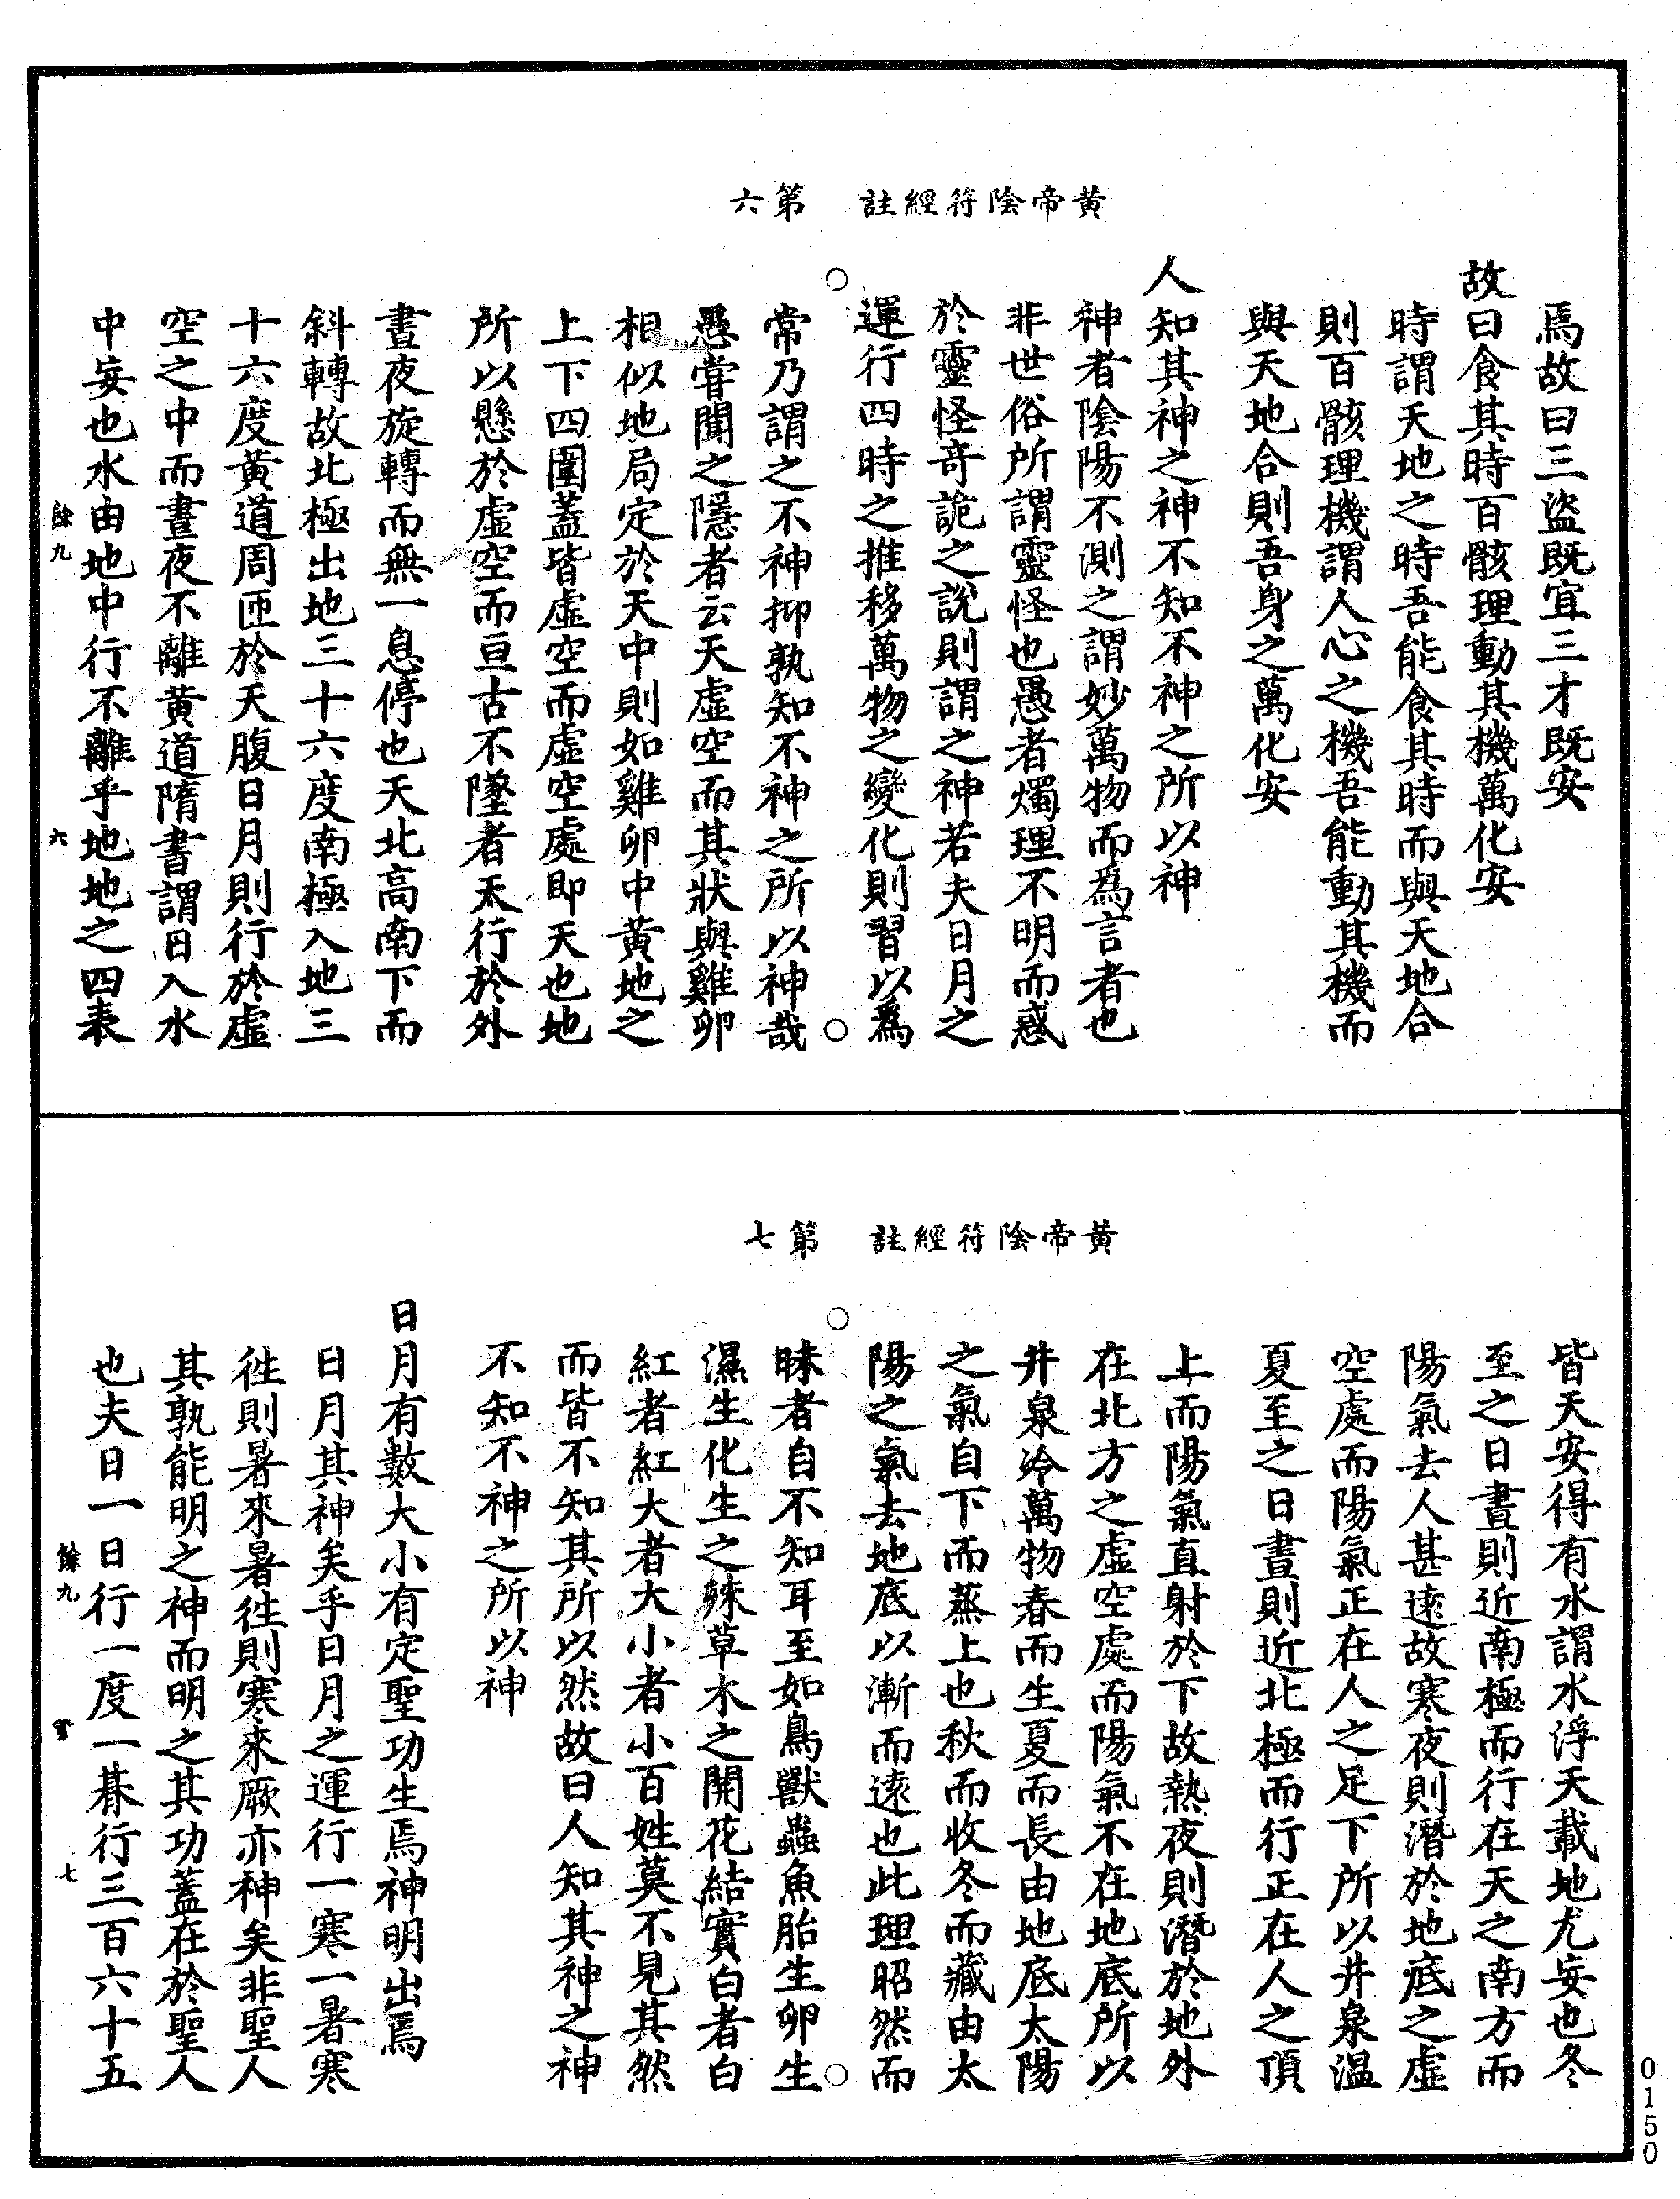 黃帝陰符經註　第六
焉故曰三盜既宜三才既安
故曰食其時百骸理動其機萬化安
時謂天地之時吾能食其時而與天地合
則百骸理機謂人心之機吾能動其機而
與天地合則吾身之萬化安
人知其神之神不知不神之所以神
神者陰陽不測之謂妙萬物而爲言者也
非世俗所謂靈怪也愚者燭理不明而惑
於靈怪竒詭之說則謂之神若夫日月之
運行四時之推移萬物之變化則習以爲
常乃謂之不神抑孰知不神之所以神哉
愚嘗聞之隱者云天虛空而其狀與雞卵
相似地局定於天中則如雞卵中黃地之
上下四圍蓋皆虛空而虛空處即天也地
所以懸於虛空而亘古不墜者天行於外
晝夜旋轉而無一息停也天北高南下而
斜轉故北極出地三十六度南極入地三
十六度黃道周匝於天腹日月則行於虛
空之中而晝夜不離黃道隋書謂日入水
中妄也水由地中行不離乎地地之四表
餘九　六
黃帝陰符經註　第七
皆天安得有水謂水浮天載地尤妄也冬
至之日晝則近南極而行在天之南方而
陽氣去人甚遠故寒夜則潛於地底之虛
空處而陽氣正在人之足下所以井泉溫
夏至之日晝則近北極而行正在人之頂
上而陽氣直射於下故熱夜則潛於地外
在北方之虛空處而陽氣不在地底所以
井泉冷萬物春而生夏而長由地底太陽
之氣自下而蒸上也秋而收冬而藏由太
陽之氣去地底以漸而遠也此理昭然而
昧者自不知耳至如鳥獸蟲魚胎生卵生
濕生化生之殊草木之開花結實白者白
紅者紅大者大小者小百姓莫不見其然
而皆不知其所以然故曰人知其神之神
不知不神之所以神
日月有數大小有定聖功生焉神明出焉
日月其神矣乎日月之運行一寒一暑寒
徃則暑來暑徃則寒來厥亦神矣非聖人
其孰能明之神而明之其功蓋在於聖人
也夫日一日行一度一朞行三百六十五
餘九　七
0150